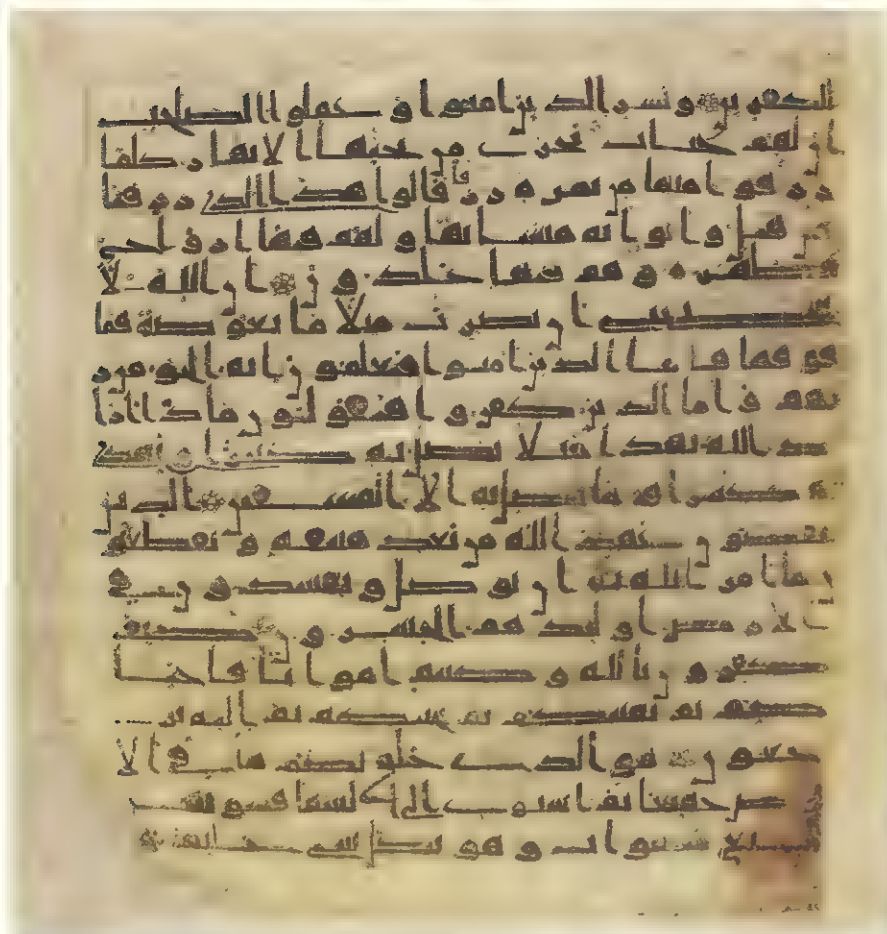 للكفرين وبشر الذين امنوا وعملوا الصلحت
ان لهم جنت تجري من تحتها الانهر كلما
رزقوا منها من ثمرة رزقا قالوا هذا الذي رزقنا
من قبل واتوا به متشبها ولهم فيها ازوج
مطهرة وهم فيها خلدون ان الله لا
يستحي ان يضرب مثلا ما بعوضة فما
فوقها فاما الذين امنوا فيعلمون انه الحق من ر
بهم واما الذين كفروا فيقولون ماذا ارا
د الله بهذا مثلا يضل به كثيرا ويهد
ي به كثيرا وما يضل به الا الفسقين الذين
ينقضون عهد الله من بعد ميثقه ويقطعو
ن ما امر الله به ان يوصل ويفسدون في
الارض اولئك هم الخسرون كيف
تكفرون بالله وكنتم اموتا فاحيا
كم ثم يميتكم ثم يحييكم ثم اليه تر
جعون هو الذي خلق لكم ما في الا
رض جميعا ثم استوى الى السما فسويهن
سبع سموت وهو بكل شي عليم